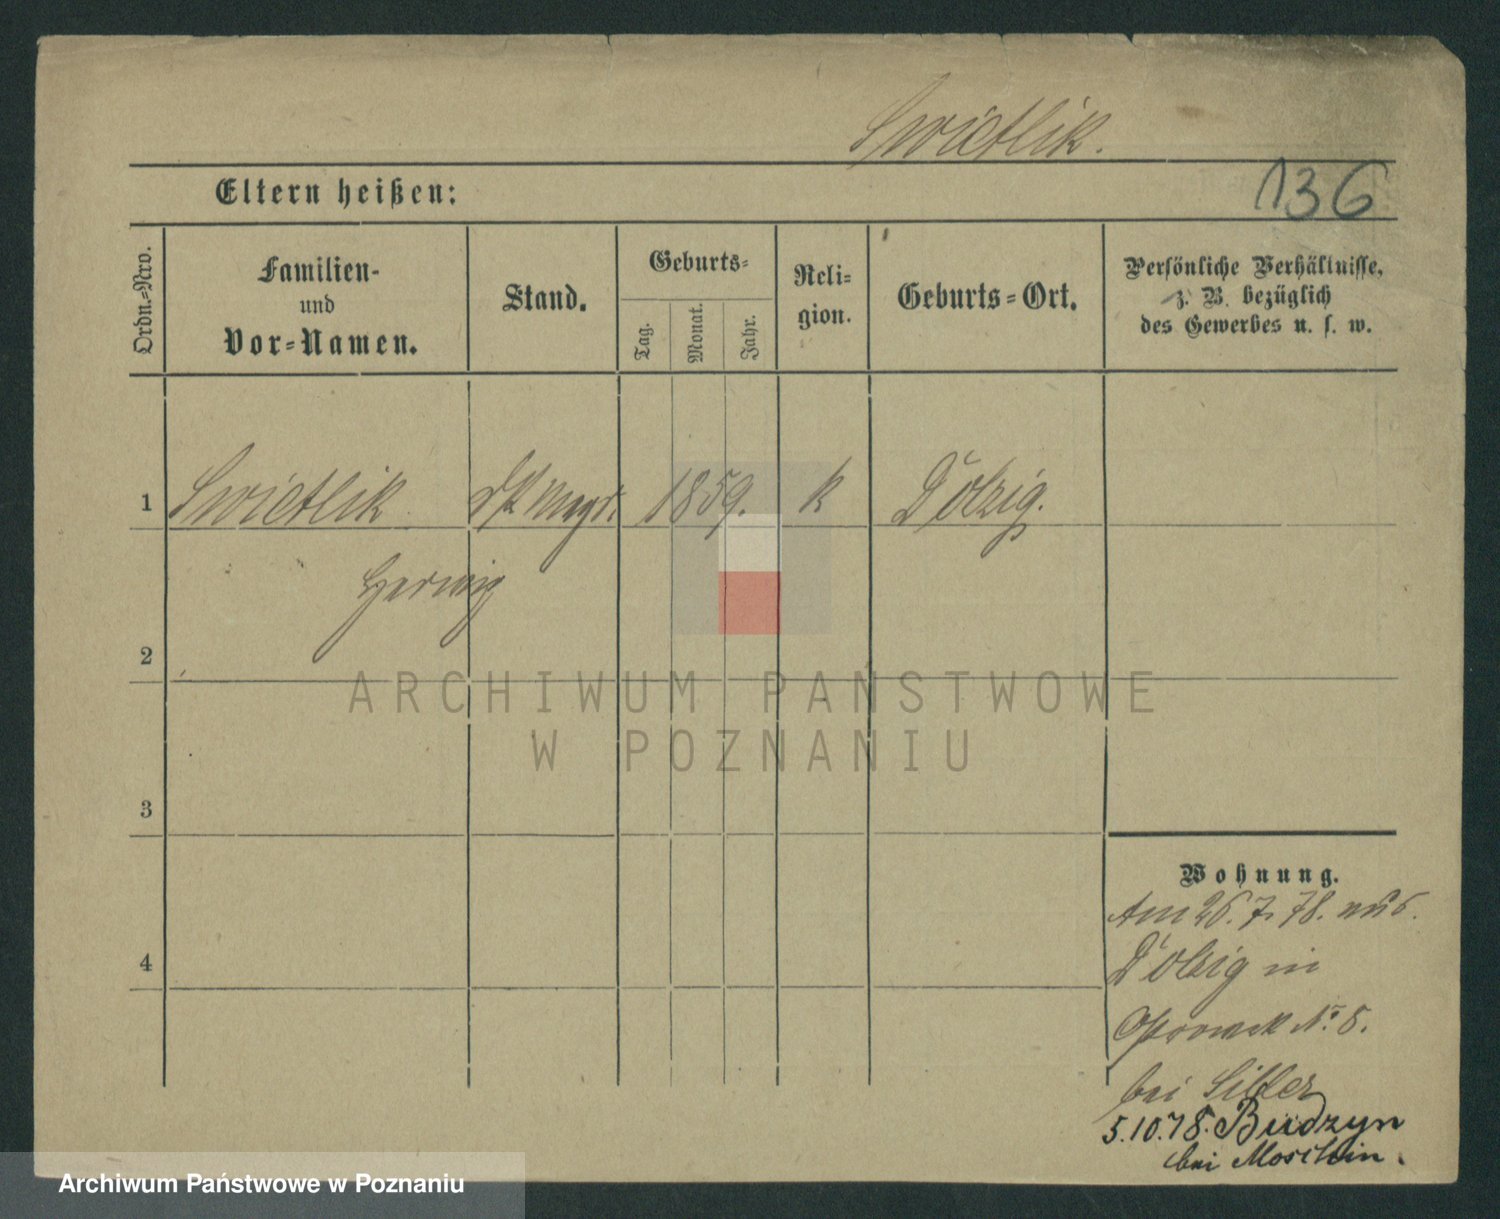 Swietlik.
136
Eltern heißen:
Ordn.-Nro.
Familien-
und
Vor-Namen.
Stand.
Geburts-
Tag.
Monat.
Jahr.
Reli-
gion.
Geburts-Ort.
Persönliche Verhältnisse,
z. B. bezüglich
des Gewerbes u. s. w.
1 Swietlik 1859. k Dolzig.
Hedwig
2
3
4
Wohnung.
Am 26. 7. 78. aus
Dolzig in
Ostrowek No. 5.
bei
5.10.78. Budzyn
bei Moschin.
ARCHIWUM PAŃSTWOWE
W POZNANIU
Archiwum Państwowe w Poznaniu